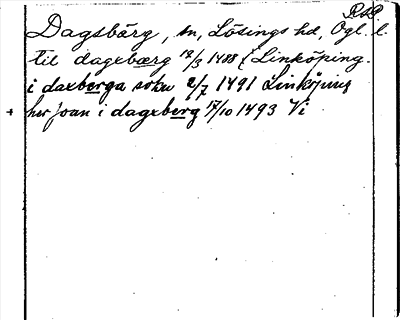 RAP
Dagsbärg, sn, Lösings hd, Ögl. l.
til dagxbærg 12/3 1488 (Linköping.
i daxberga sokn 2/7 1491 Linköping
+ her Joan i dagxberg 17/10 1493 Vi